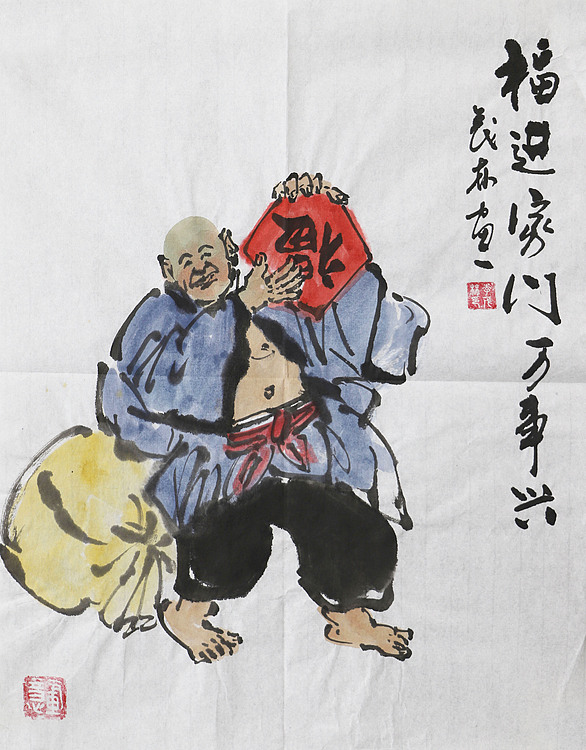 福进家门万事兴
茂林画
福